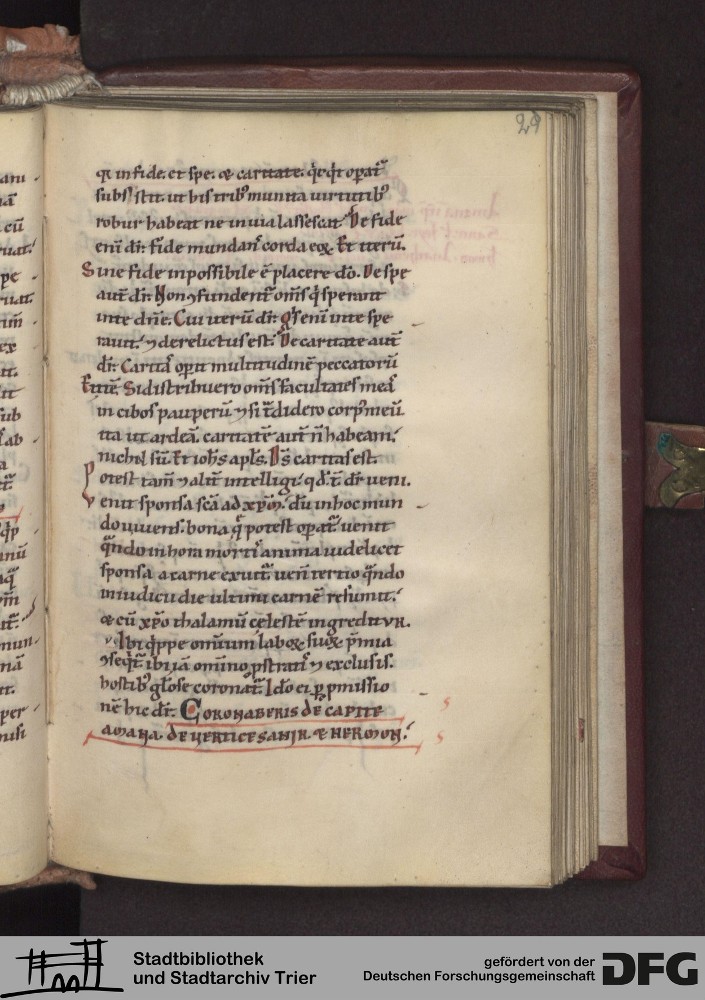 29
q in fide. et spe. & caritate. qcqͥd opaͭ
subsistit. ut his tribꝰ munita uirtutibꝰ
robur habeat ne in uia lassescat. De fide
eni dr̄. fide mundans corda eoꝝ. Et iterū.
Sine fide inpossibile ē placere dō. De spe
aut̄ dr̄. Non ꝯfundent᷑ om̄s q̄ sperant
in te dn̄e. Cui iterū dr̄. qͥs eni in te spe
rauit. & derelictus est. De caritate aut̄
dr̄. Caritas opit multitudinē peccatorū
Et itē. Si distribuero om̄s facultates meas
in cibos pauperū & si t̄didero corpꝰ meū
ita ut ardeā. caritatē aut̄ n̄ habeam.
nichil sū. Et ioh̄s apl̄s. Ds̄ caritas est.
Potest tam̄ & alit̄ intelligi. qd̄. t̄. dr̄ ueni.
Uenit sponsa sc̄a ad xp̄m. dū in hoc mun
do uiuens. bona q̄ potest opat᷑. uenit
qn̄do in hora mortis anima uidelicet
sponsa a carne exuit᷑. uen̄ tertio qn̄do
in iudicii die ultimi carnē resumit.
& cū xp̄o thalamū celestē ingreditur.
Ibi qͥppe omnium laboꝝ suoꝝ p̄mia
ꝯseqͥt᷑. ibi iā omnino pstratis & exclusis.
hostibꝰ gl̄ose coronat᷑. Ido ei p pmissio
nē hic dr̄. Coronaberis de capite
amana. de uertice sanir. & hermon.
Stadtbibliothek
und Stadtarchiv Trier
gefördert von der
Deutschen Forschungsgemeinschaft
DFG